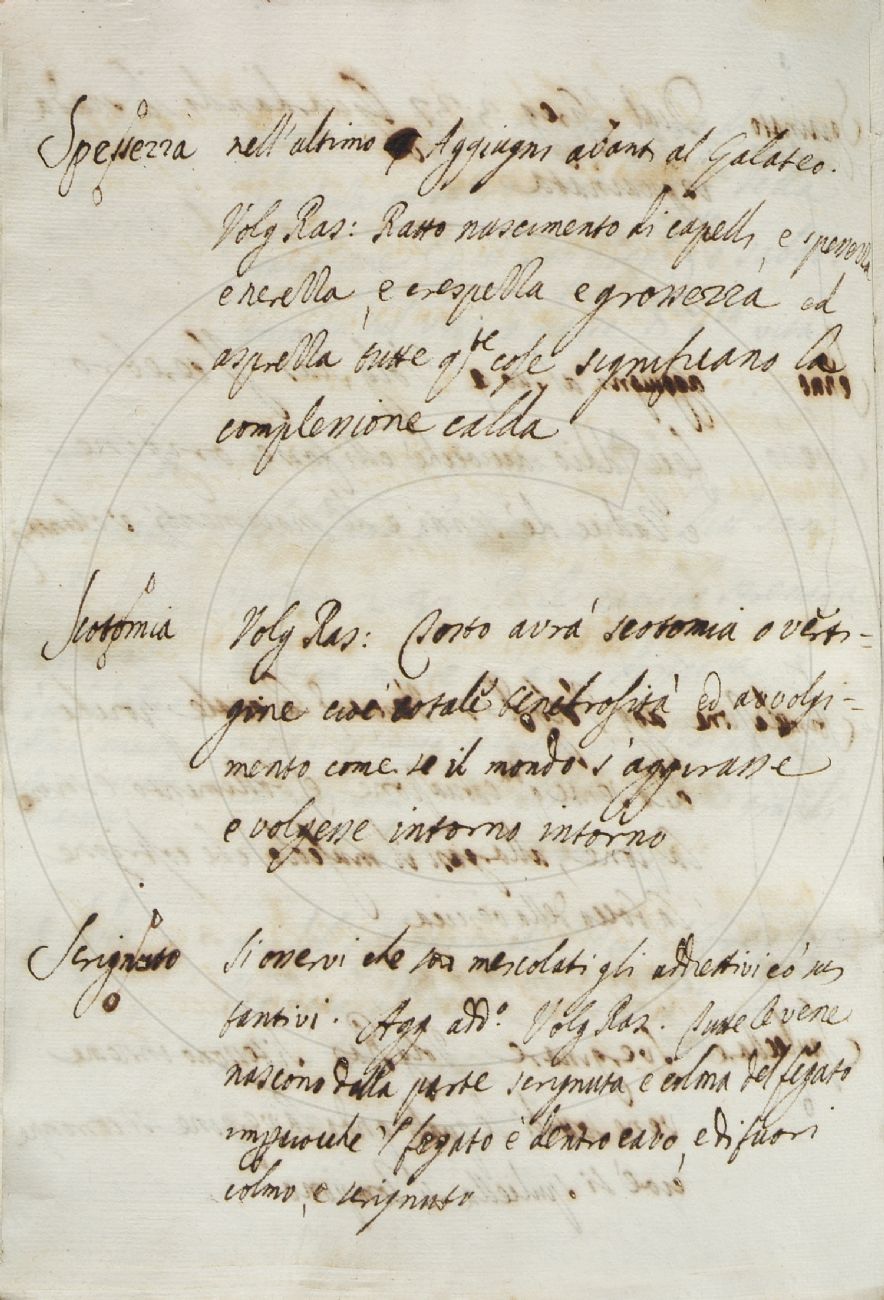 Spessezza nell'altimo Aggiugni avanti al Galateo.
Volg Ras: Ratto nascimento di capelli, e spessezza
e nerezza, e crespezza e grossezza ed
asprezza tutte q.ste cose significano la
complessione calda
Scotomia Volg Ras: Costo avrà scotomia o verti=
gine cioè totale tenebrosità ed avvolgi=
mento come se il mondo s'aggirasse
e volgesse intorno intorno
Scrignuto Si osservi che son mescolati gli addiettivi co' sus
tantivi. Agg add.o Volg Ras. Tutte le vene
nascono dalla parte scrignuta, e colma del fegato
impciocche 'l fegato è dentro cavo, e di fuori
colmo, e scrignuto